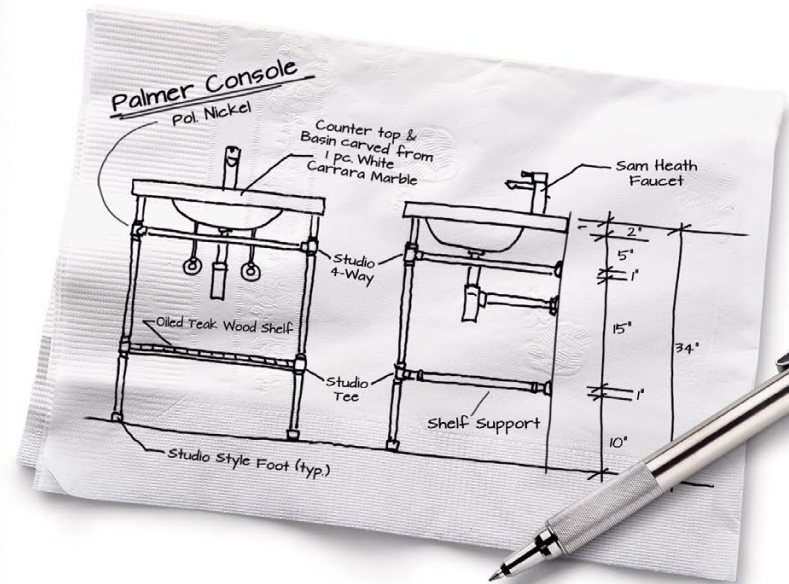 Palmer Console
Pol. Nickel
Counter top &
Basin carved from
1 pc. White
Carrara Marble
Sam Heath
Faucet
2"
5"
Studio
4-Way
1"
Oiled Teak Wood Shelf
15"
34"
Studio
Tee
1"
Shelf Support
10"
Studio Style Foot (typ.)